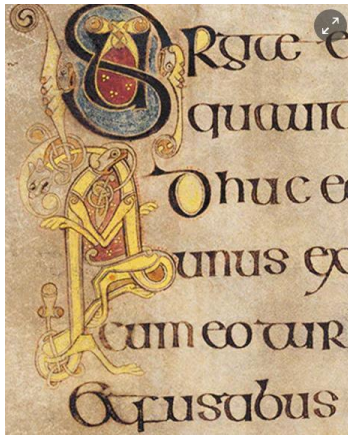 SURgite e
quauit
Adhuc eo
unus ex
cum eo tur
et fustibus